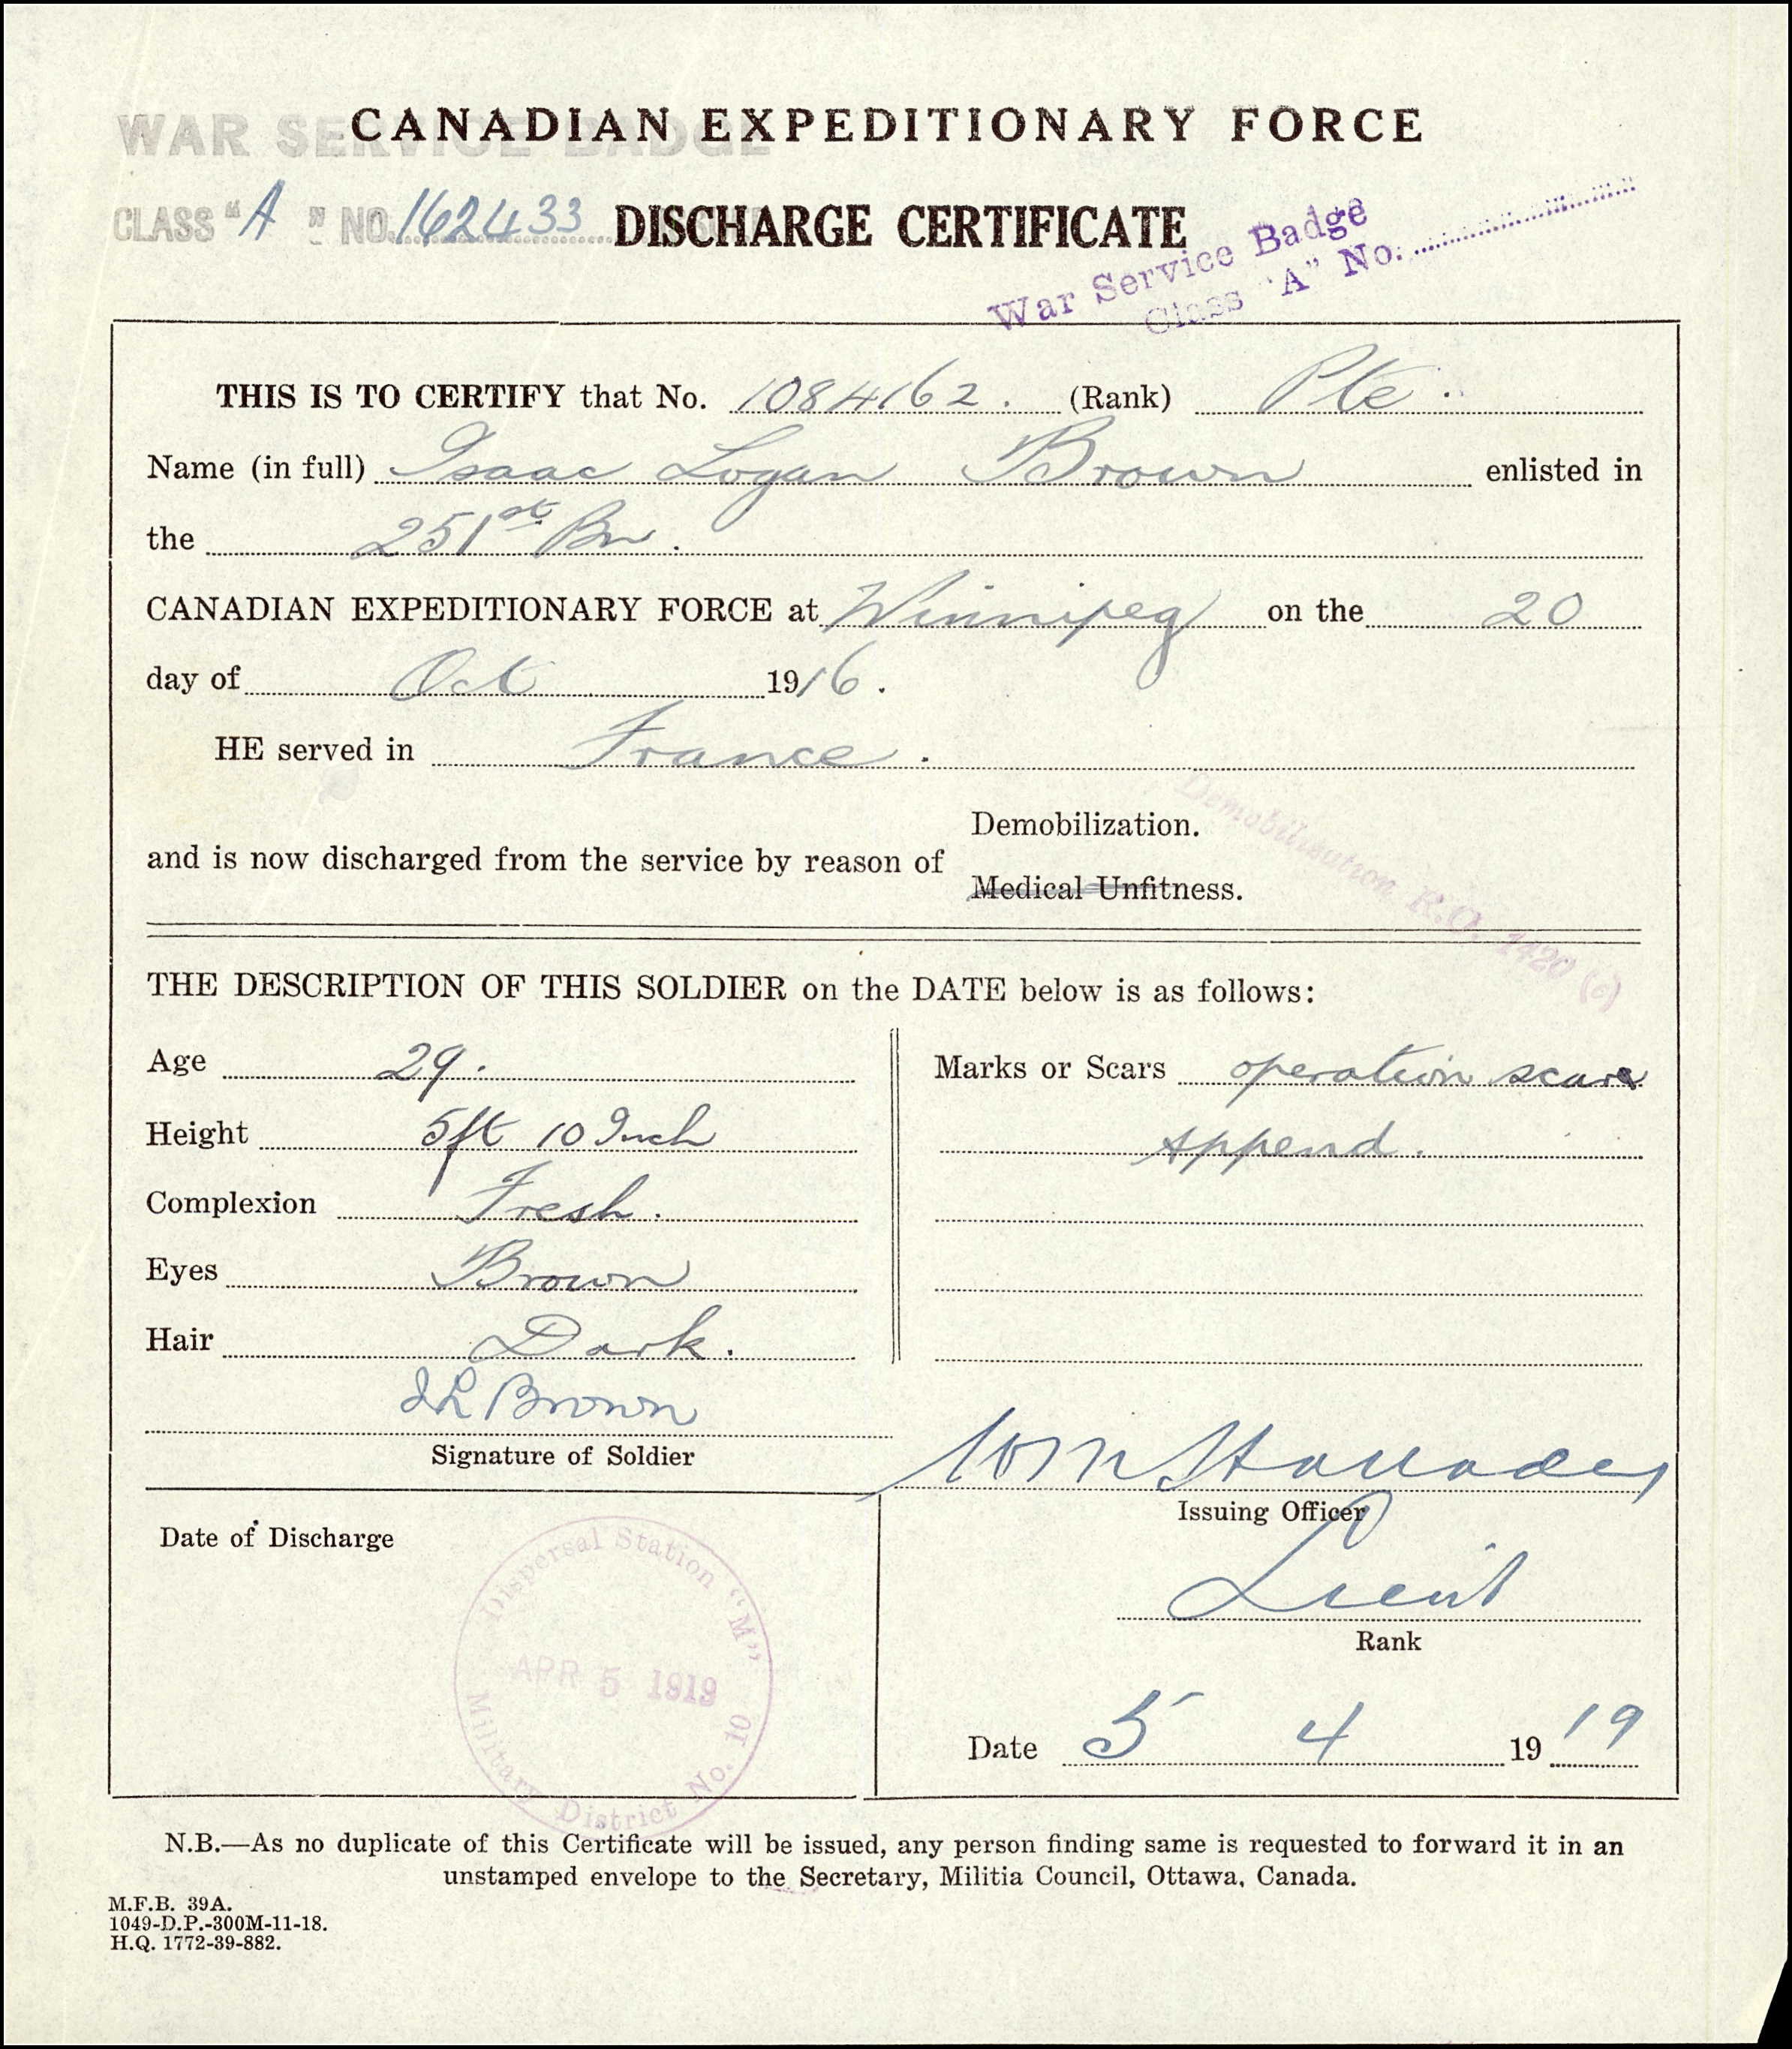 WAR SERVICE BADGE
CANADIAN EXPEDITIONARY FORCE
CLASS "A" NO. 162433
DISCHARGE CERTIFICATE
War Service Badge
Class "A" No.
THIS IS TO CERTIFY that No. 1084162. (Rank) Pte.
Name (in full) Isaac Logan Brown enlisted in
the 251st Bn.
CANADIAN EXPEDITIONARY FORCE at Winnipeg on the 20
day of Oct 1916.
HE served in France.
Demobilization.
and is now discharged from the service by reason of
Medical Unfitness.
Demobilization R.O. 1420 (c)
THE DESCRIPTION OF THIS SOLDIER on the DATE below is as follows:
Age 29.
Height 5ft 10 Inch
Complexion Fresh.
Eyes Brown
Hair Dark.
Marks or Scars operation scar
Append.
I L Brown
Signature of Soldier
Issuing Officer
Lieut
Rank
Date of Discharge
Dispersal Station "M"
APR 5 1919
Military District No. 10
Date 5 4 1919
N.B.—As no duplicate of this Certificate will be issued, any person finding same is requested to forward it in an
unstamped envelope to the Secretary, Militia Council, Ottawa, Canada.
M.F.B. 39A.
1049-D.P.-300M-11-18.
H.Q. 1772-39-882.